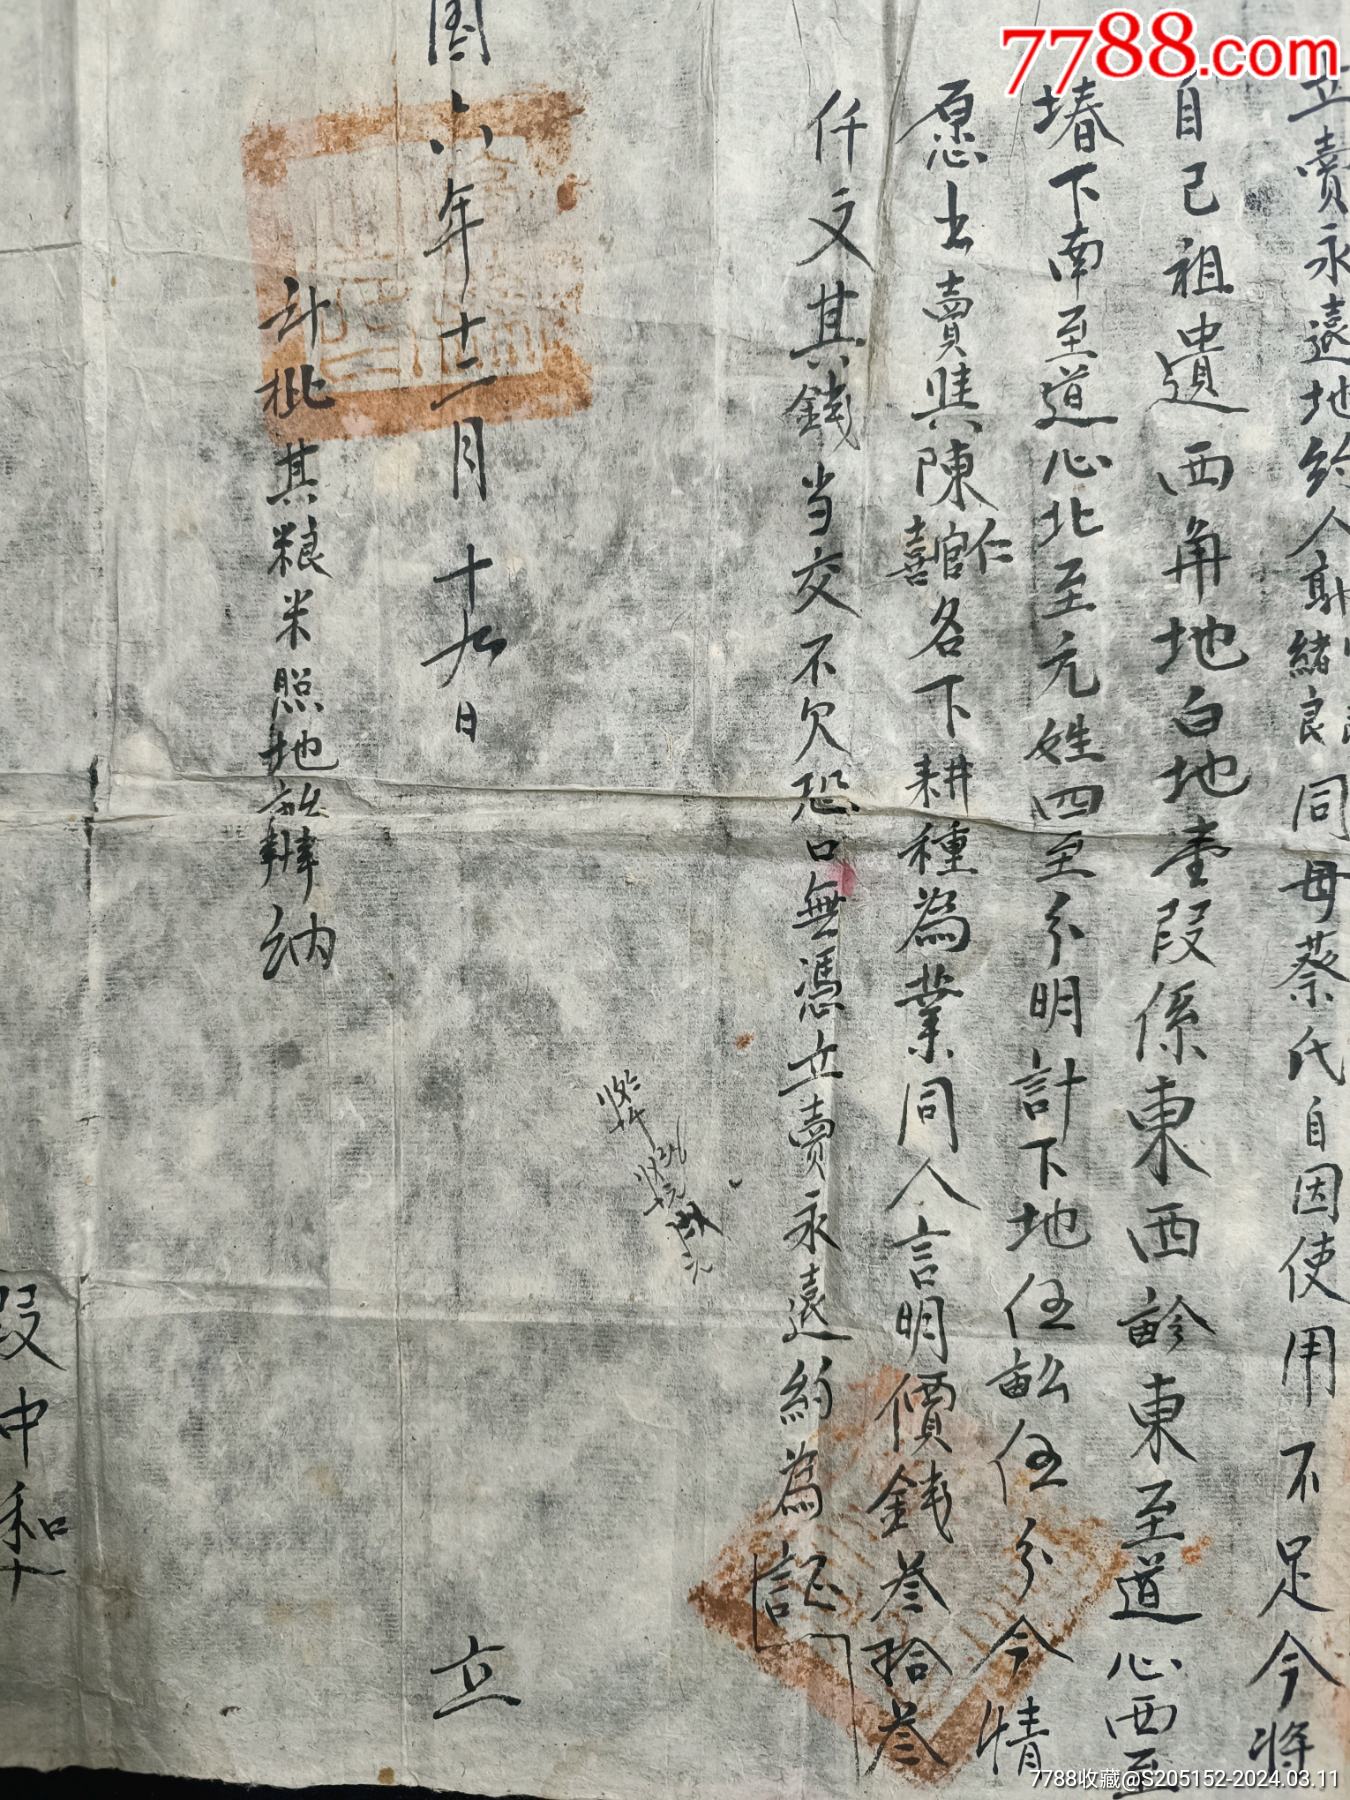 7788.com
立賣永遠地約人 緒良 同母蔡氏自因使用不足今將
自己祖遺西角地白地壹段係東西畛東至道心西至
堾下南至道心北至元姓四至分明計下地伍畝伍分今情
愿出賣與陳官喜仁名下耕種為業同人言明價錢叁拾叁
仟文其錢当交不欠恐口無憑立賣永遠約為証
國六年十二月十九日 立
計批其粮米照地辦納
段中和
7788收藏@S205152-2024.03.11